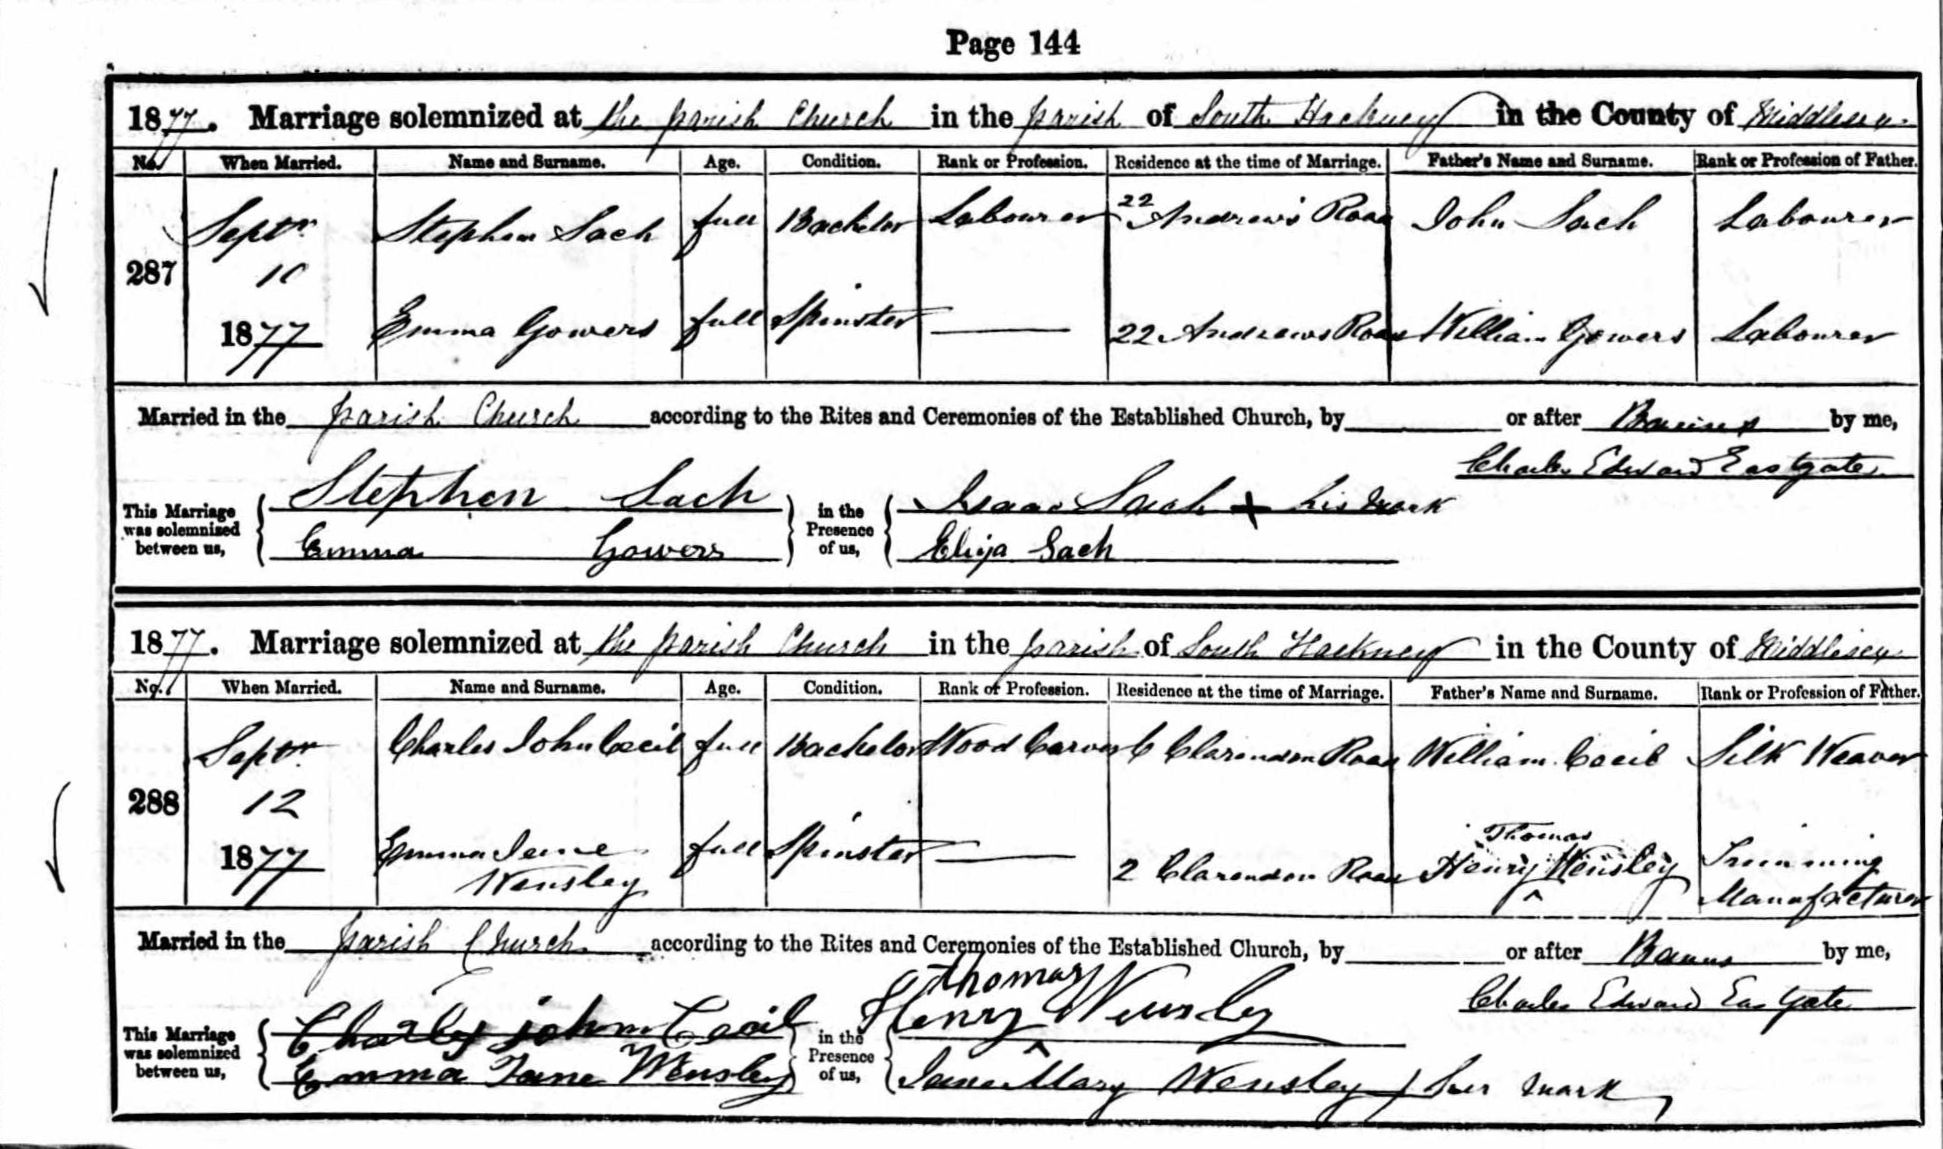 Page 144
1877. Marriage solemnized at the parish Church in the parish of South Hackney in the County of Middlesex
No. When Married. Name and Surname. Age. Condition. Rank or Profession. Residence at the time of Marriage. Father's Name and Surname. Rank or Profession of Father.
287 Septr 10 1877
Stephen Sach full Bachelor Labourer 22 Andrew's Road John Sach Labourer
Emma Gowers full Spinster — 22 Andrews Road William Gowers Labourer
Married in the parish Church according to the Rites and Ceremonies of the Established Church, by or after Banns by me,
Charles Edward Eastgate
This Marriage was solemnized between us, Stephen Sach in the Presence of us, Isaac Sach + his mark
Emma Gowers Eliza Sach
1877. Marriage solemnized at the parish Church in the parish of South Hackney in the County of Middlesex
No. When Married. Name and Surname. Age. Condition. Rank or Profession. Residence at the time of Marriage. Father's Name and Surname. Rank or Profession of Father.
288 Septr 12 1877
Charles John Cecil full Bachelor Wood Carver Clarendon Road William Cecil Silk Weaver
Emma Jane Wensley full Spinster — 2 Clarendon Road Henry Thomas Wensley Trimming Manufacturer
Married in the parish Church according to the Rites and Ceremonies of the Established Church, by or after Banns by me,
Charles Edward Eastgate
This Marriage was solemnized between us, Charles John Cecil in the Presence of us, Henry Thomas Wensley
Emma Jane Wensley Jane Mary Wensley / her mark